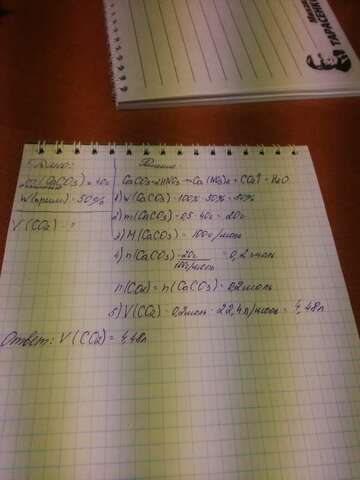 ТАРАСЕНКО
Дано:
m(CaCO3) = 40г
W(прим) = 50%
V(CO2) - ?
Решение
CaCO3 + 2HNO3 → Ca(NO3)2 + CO2↑ + H2O
1) W(CaCO3) = 100% - 50% = 50%
2) m(CaCO3) = 0,5 · 40г = 20г
3) M(CaCO3) = 100г/моль
4) n(CaCO3) = 20г / 100г/моль = 0,2 моль
n(CO2) = n(CaCO3) = 0,2 моль
5) V(CO2) = 0,2 моль · 22,4 л/моль = 4,48л
Ответ: V(CO2) = 4,48л